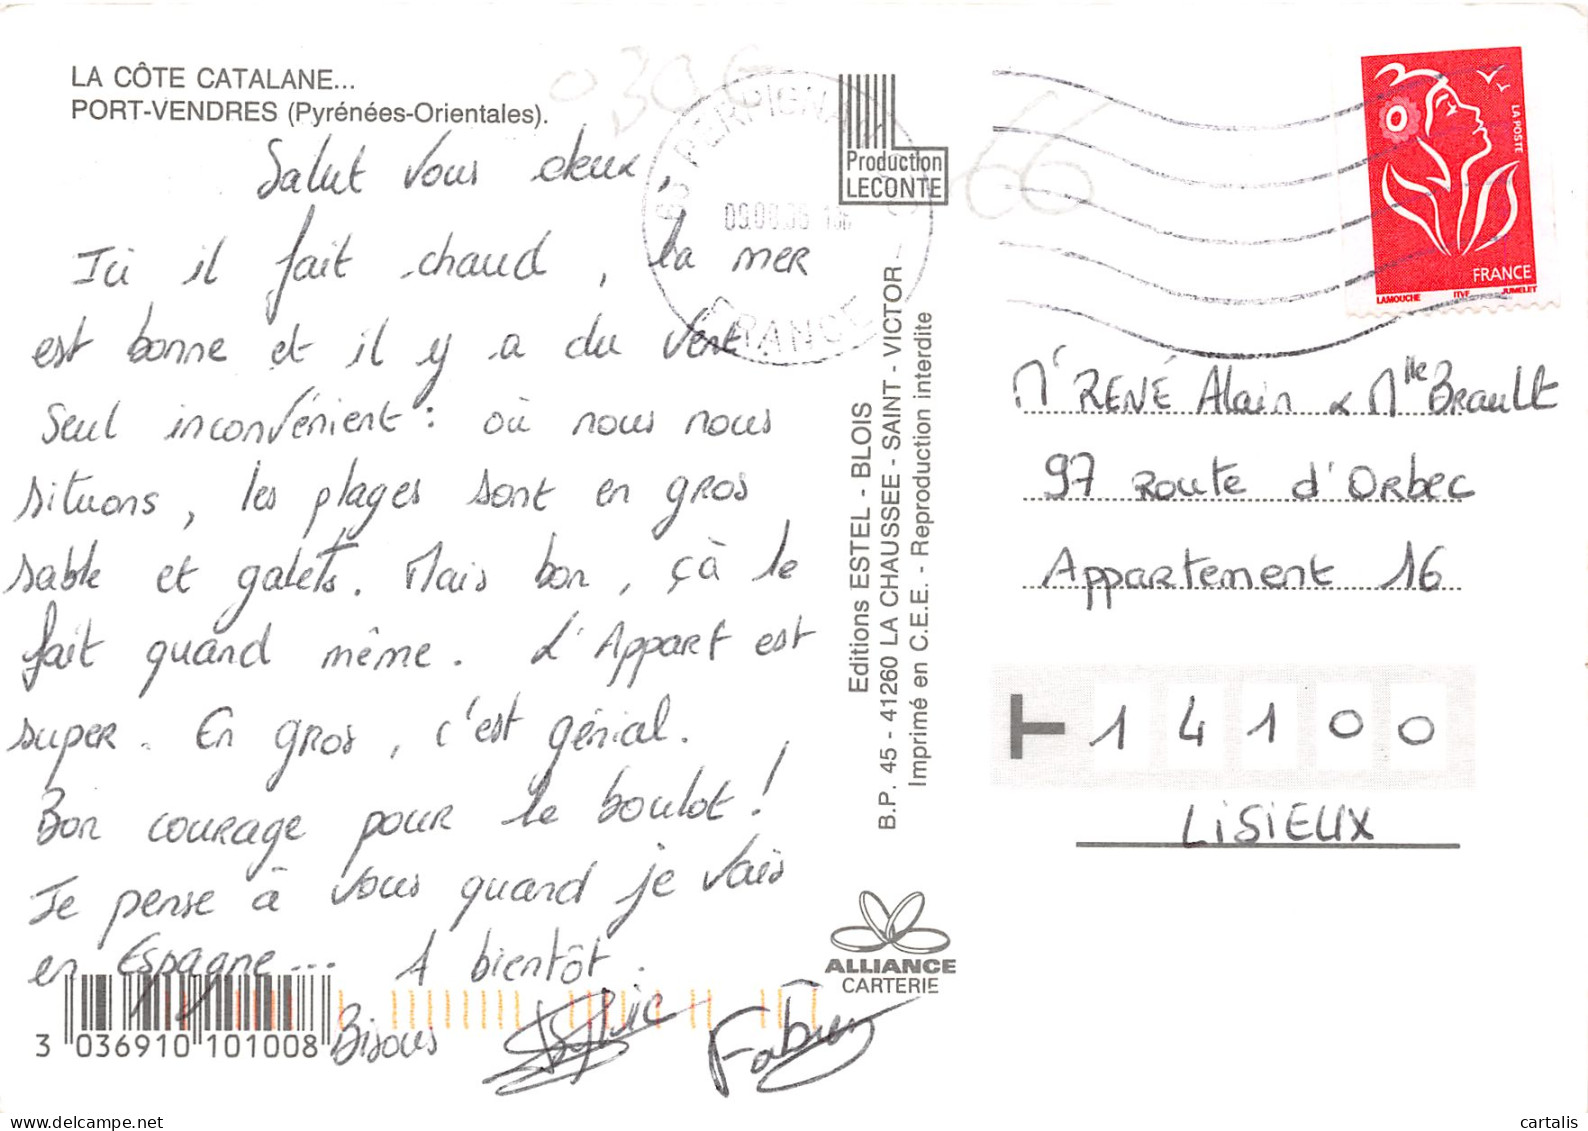 LA CÔTE CATALANE...
PORT-VENDRES (Pyrénées-Orientales).
Salut vous deux,
Ici il fait chaud, la mer
est bonne et il y a du vent
Seul inconvénient : où nous nous
situons, les plages sont en gros
sable et galets. Mais bon, çà le
fait quand même. L'Appart est
super. En gros, c'est génial.
Bon courage pour le boulot !
Je pense à vous quand je vais
en Espagne... A bientôt.
Bisous
Fabien
3 036910 101008
Production
LECONTE
Editions ESTEL - BLOIS
B.P. 45 - 41260 LA CHAUSSEE - SAINT - VICTOR -
Imprimé en C.E.E. - Reproduction interdite
ALLIANCE
CARTERIE
PERPIGNAN
FRANCE
0306
66
LA POSTE
FRANCE
LAMOUCHE ITVF JUMELET
Mr RENÉ Alain & Mlle Brault
97 Route d'Orbec
Appartement 16
T 14100
LISIEUX
cartalis